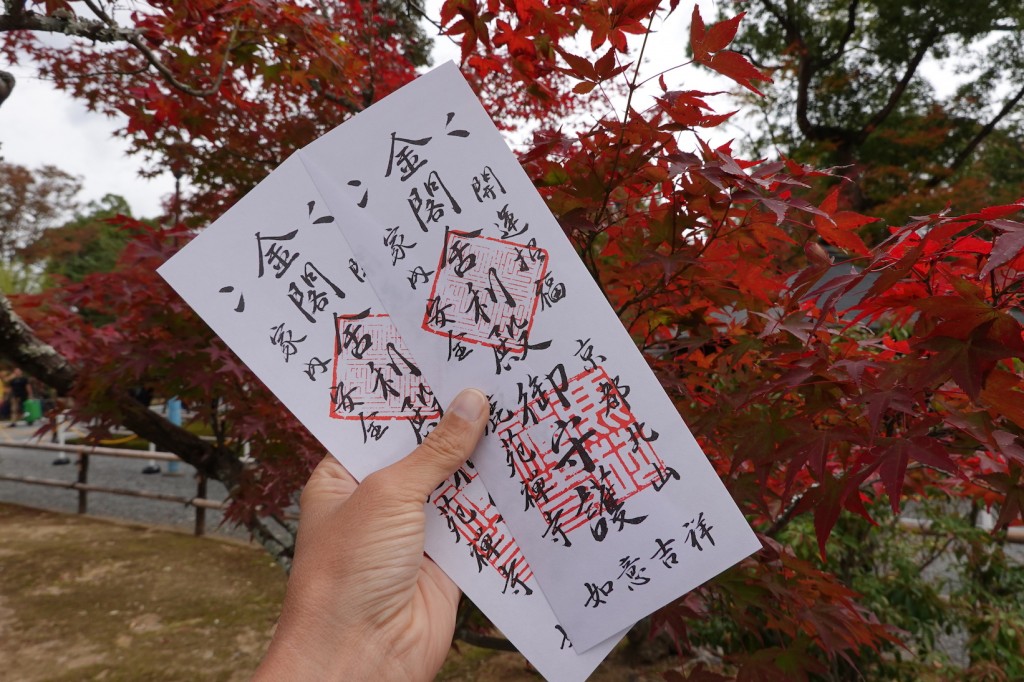 開運招福
京都北山
金閣舎利殿
御守護
家内安全
鹿苑禅寺
如意吉祥
金閣舎利殿
家内安全
苑禅寺